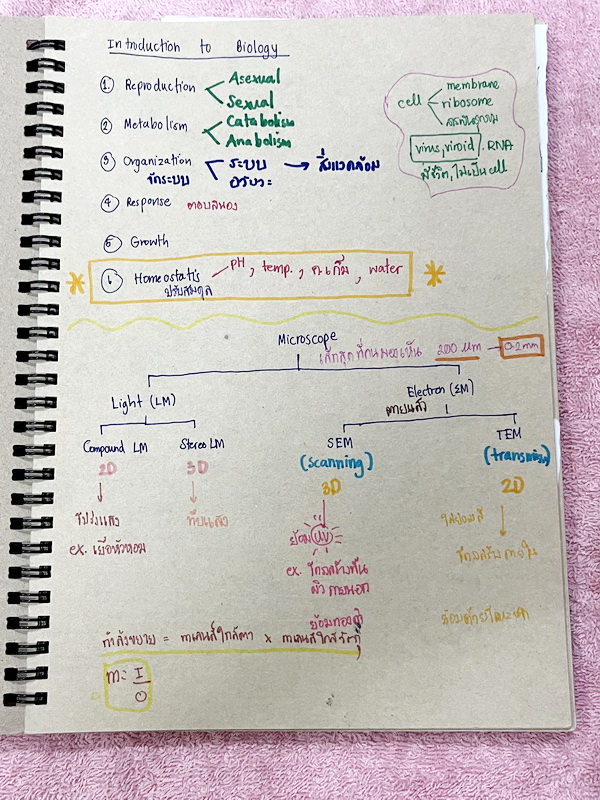 Introduction to Biology
① Reproduction Asexual
Sexual
② Metabolism Catabolism
Anabolism
③ Organization ระบบ → สิ่งแวดล้อม
จัดระบบ อวัยวะ
④ Response ตอบสนอง
⑤ Growth
⑥ Homeostatis pH, temp., ค.เค็ม, water
ปรับสมดุล
cell membrane
ribosome
สารพันธุกรรม
virus, viroid, RNA
มีชีวิต, ไม่เป็น cell
Microscope
เล็กสุดที่คนมองเห็น 200 µm — 0.2 mm
Light (LM) Electron (EM)
ตายแล้ว
Compound LM Stereo LM SEM TEM
(scanning) (transmission)
2D 3D 3D 2D
โปร่งแสง ทึบแสง
ex. เยื่อหัวหอม
ย้อม
ex. โครงสร้างพื้น
ผิว ภายนอก
โครงสร้างภายใน
ย้อมทอง
ย้อมด้วยโลหะหนัก
กำลังขยาย = กำเลนส์ใกล้ตา × กำเลนส์ใกล้วัตถุ
m = I
O